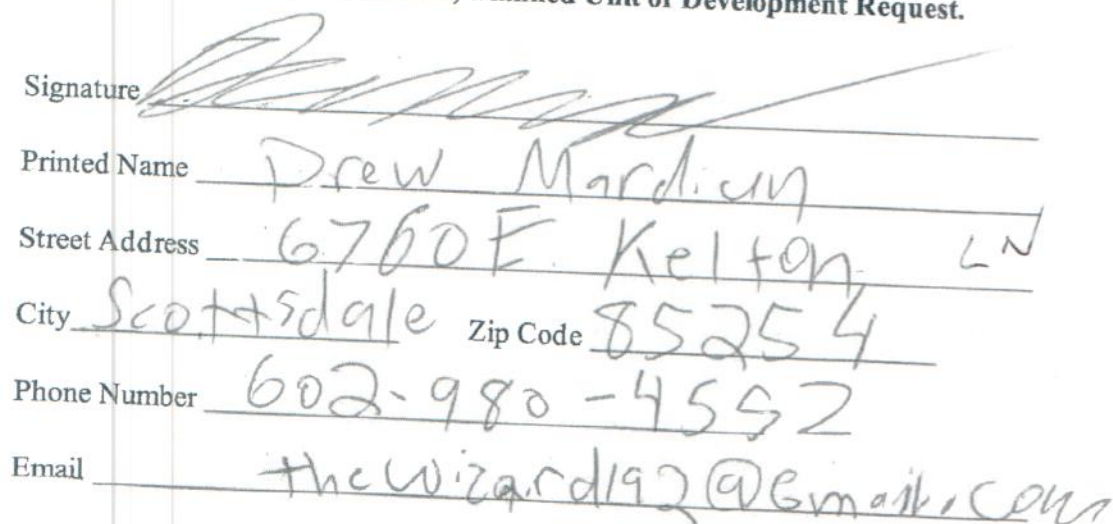 Unit of Development Request.
Signature
Printed Name Drew Mardian
Street Address 6760 E. Kelton LN
City Scottsdale Zip Code 85254
Phone Number 602-980-4552
Email thewizard192@Gmail.com